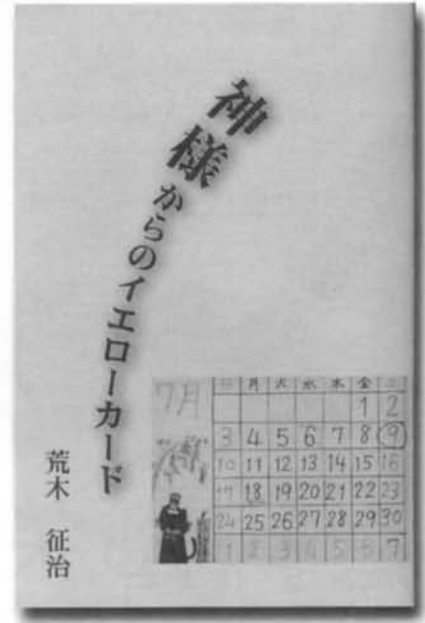 神様からのイエローカード
荒木 征治
7月
日 月 火 水 木 金 土
1 2
3 4 5 6 7 8 9
10 11 12 13 14 15 16
17 18 19 20 21 22 23
24 25 26 27 28 29 30
1 2 3 4 5 6 7